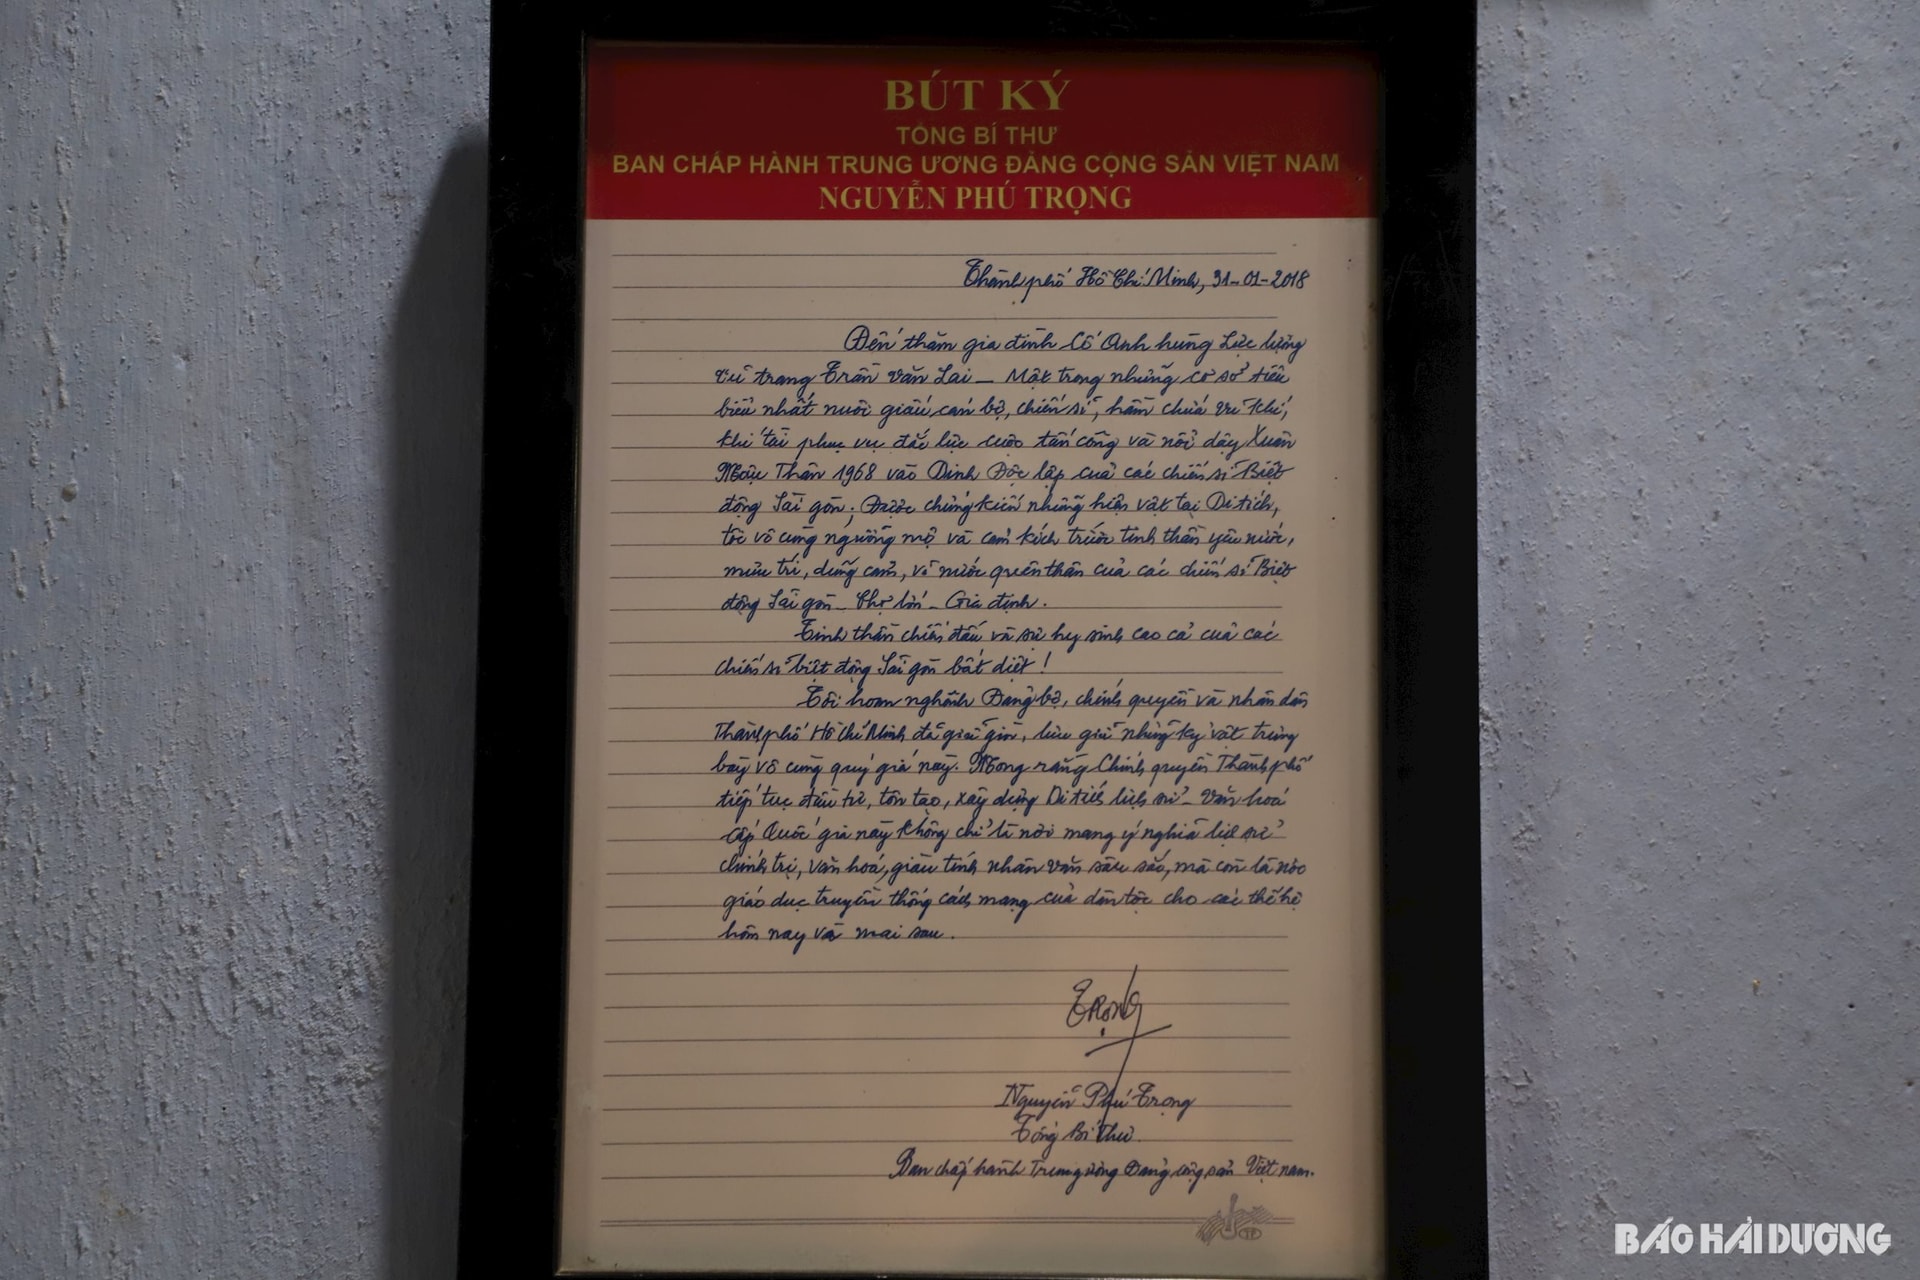 BÚT KÝ
TỔNG BÍ THƯ
BAN CHẤP HÀNH TRUNG ƯƠNG ĐẢNG CỘNG SẢN VIỆT NAM
NGUYỄN PHÚ TRỌNG
Thành phố Hồ Chí Minh, 31-01-2018
Đến thăm gia đình Cố Anh hùng Lực lượng
vũ trang Trần Văn Lai - Một trong những cơ sở tiêu
biểu nhất nuôi giấu cán bộ, chiến sĩ, hầm chứa vũ khí,
khí tài phục vụ đắc lực cuộc tấn công và nổi dậy Xuân
Mậu Thân 1968 vào Dinh Độc lập của các chiến sĩ Biệt
động Sài gòn; Được chứng kiến những hiện vật tại Di tích,
tôi vô cùng ngưỡng mộ và cảm kích trước tinh thần yêu nước,
mưu trí, dũng cảm, vì nước quên thân của các chiến sĩ Biệt
động Sài gòn - Chợ lớn - Gia định.
Tinh thần chiến đấu và sự hy sinh cao cả của các
chiến sĩ biệt động Sài gòn bất diệt!
Tôi hoan nghênh Đảng bộ, chính quyền và nhân dân
Thành phố Hồ Chí Minh đã giữ gìn, lưu giữ những kỷ vật trưng
bày vô cùng quý giá này. Mong rằng Chính quyền Thành phố
tiếp tục đầu tư, tôn tạo, xây dựng Di tích lịch sử - Văn hoá
cấp Quốc gia này không chỉ là nơi mang ý nghĩa lịch sử
chính trị, văn hoá, giàu tính nhân văn sâu sắc, mà còn là nơi
giáo dục truyền thống cách mạng của dân tộc cho các thế hệ
hôm nay và mai sau.
Trọng
Nguyễn Phú Trọng
Tổng Bí Thư
Ban chấp hành Trung ương Đảng cộng sản Việt nam.
BÁO HẢI DƯƠNG